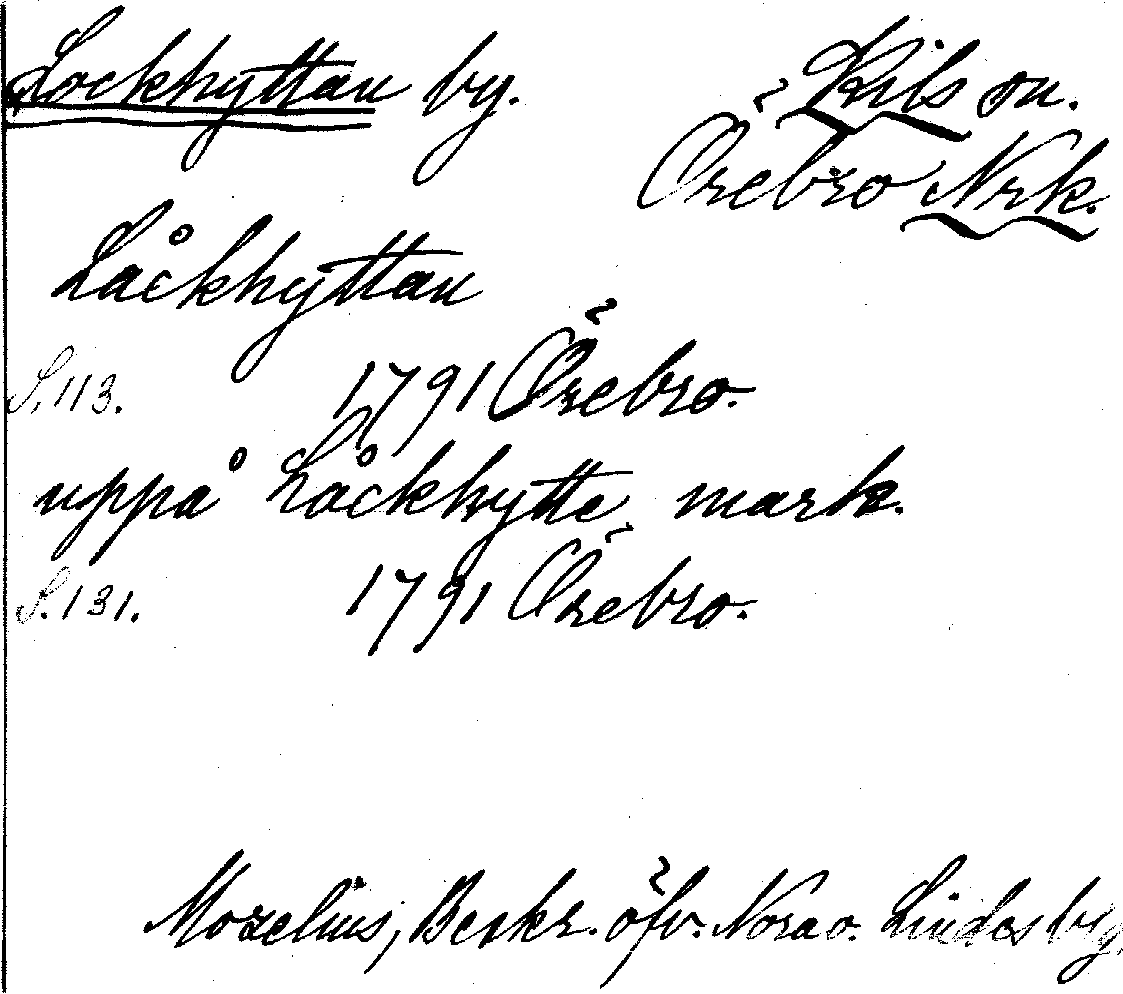 Lockhyttan by. Kils sn.
Örebro Nrk.
Låckhyttan
S. 113. 1791 Örebro.
uppå Låckhytte mark.
S. 131. 1791 Örebro.
Mozelius, Beskr. öfv. Nora o. Lindes blg.